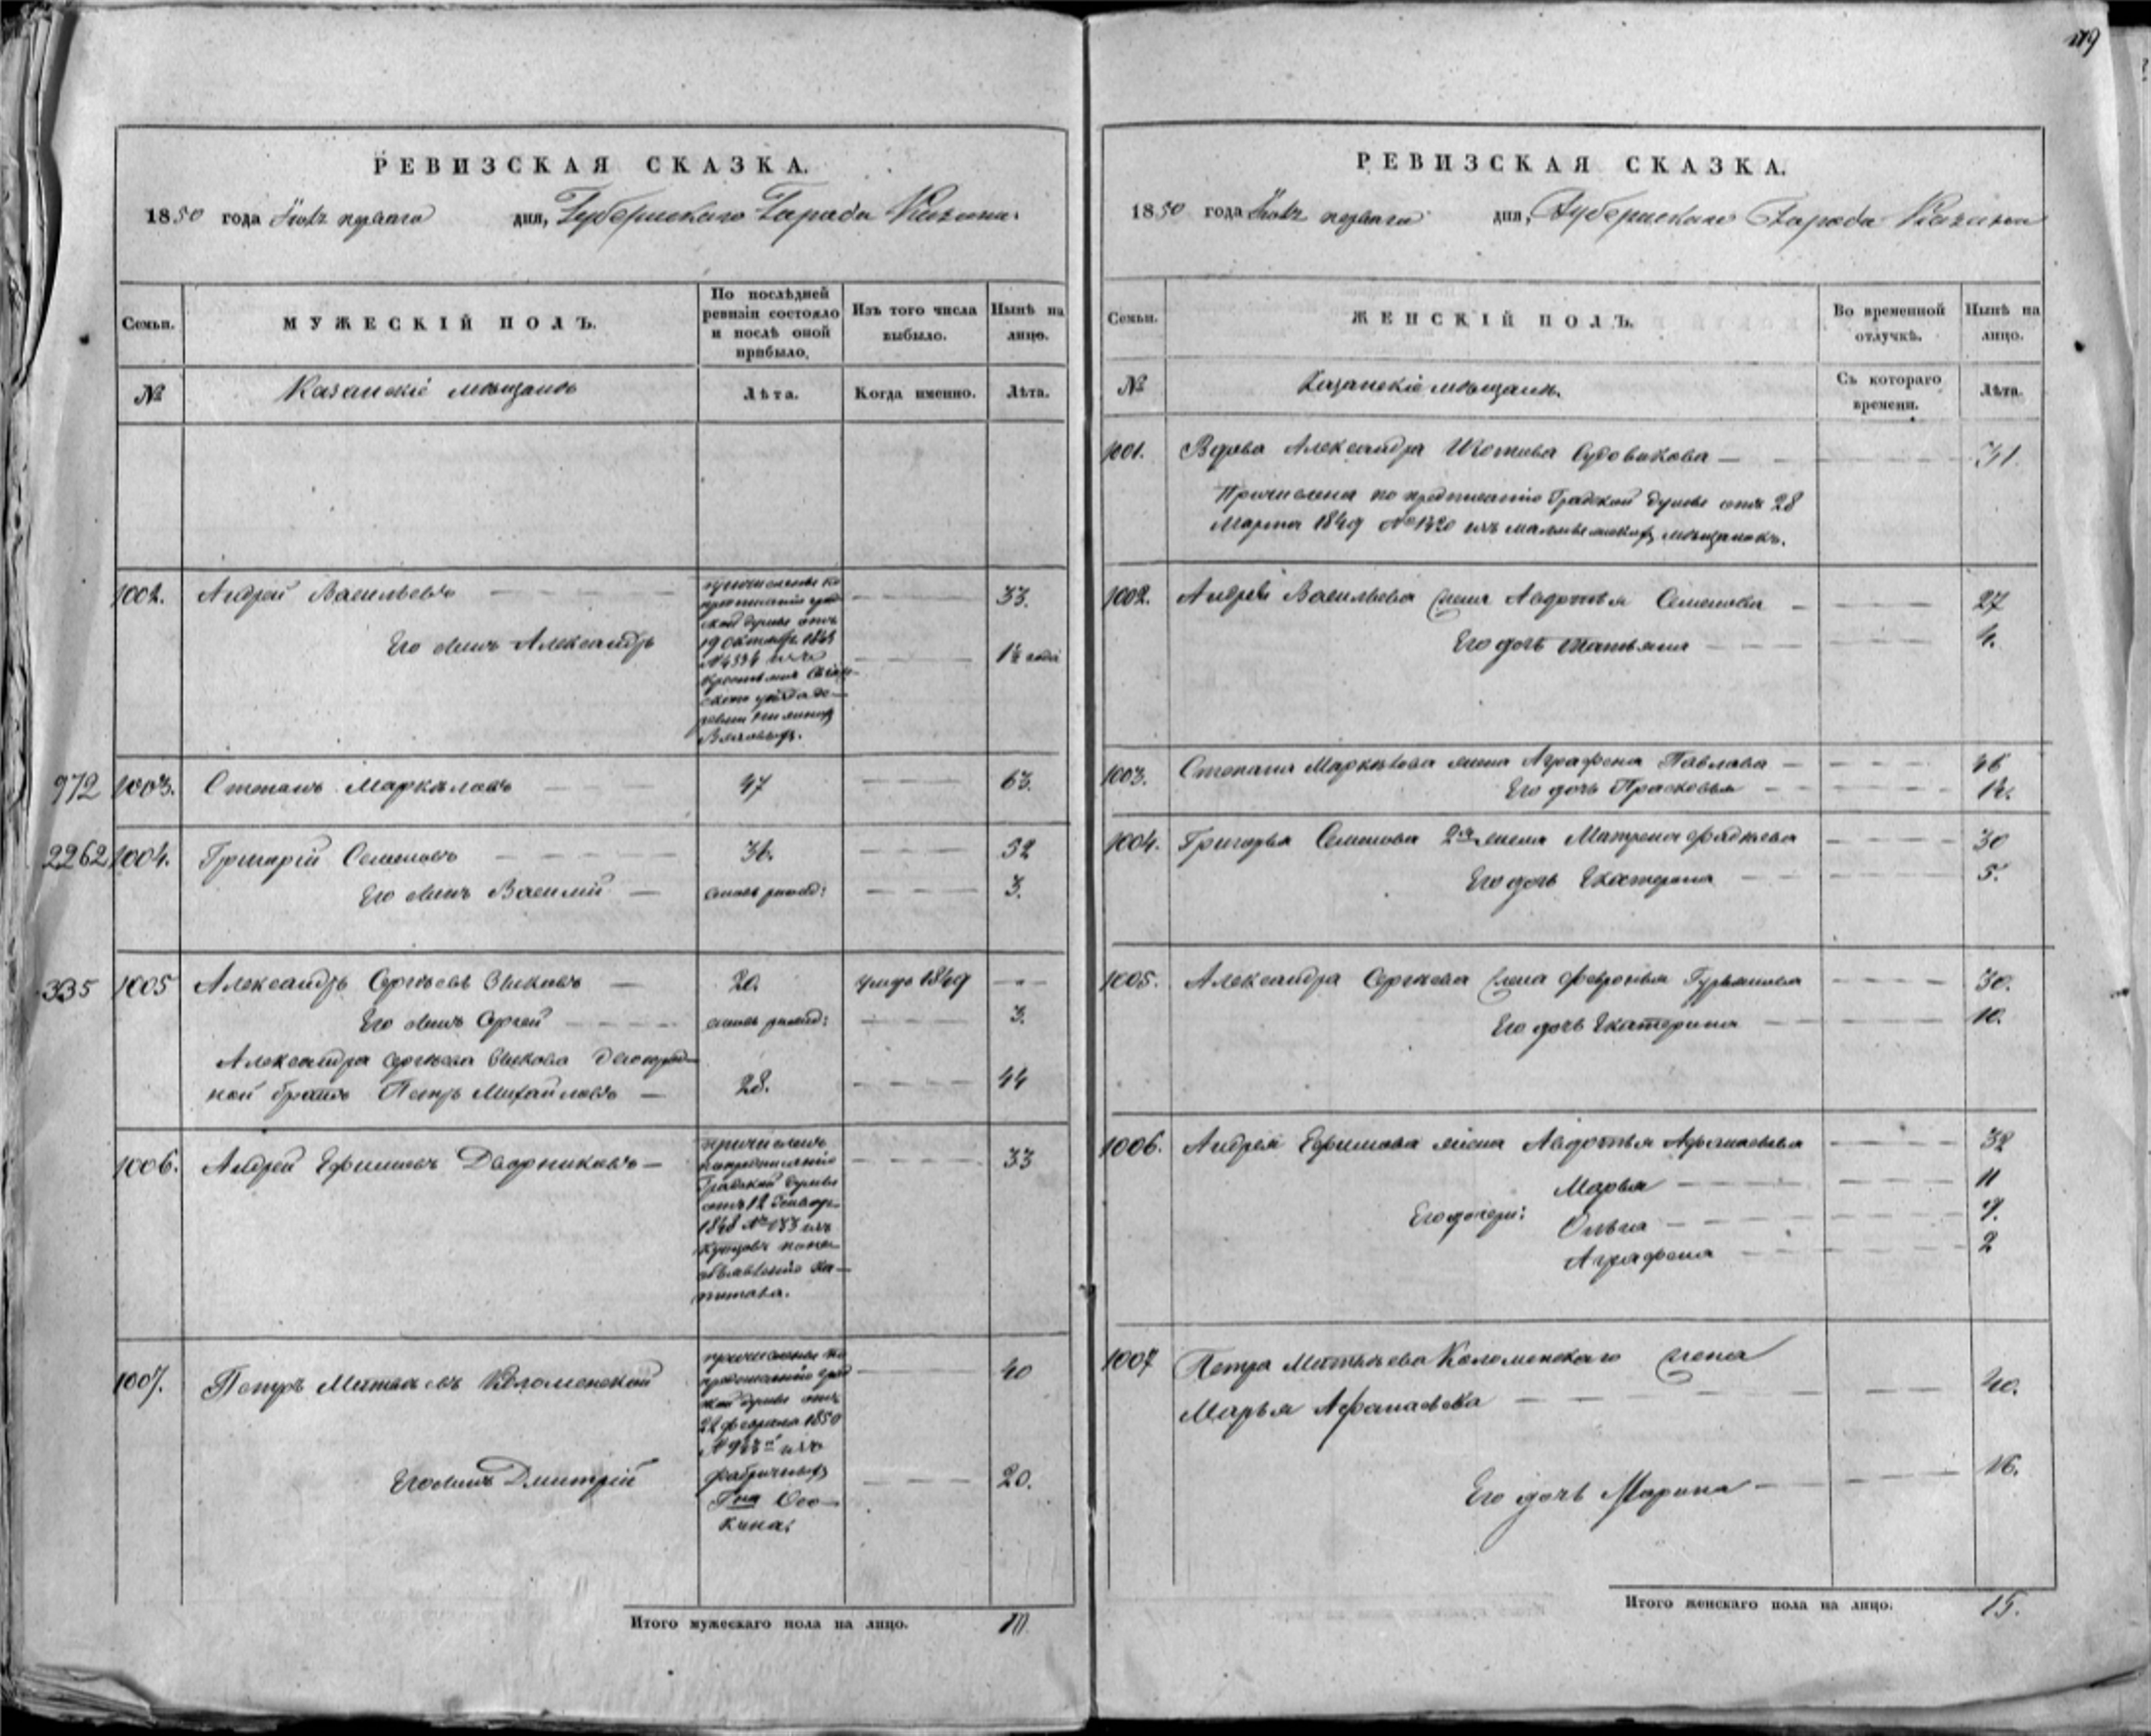 119
РЕВИЗСКАЯ СКАЗКА.
1850 года дня, Губернскаго Города Казани.
Семьи.
МУЖЕСКІЙ ПОЛЪ.
По послѣдней
ревизіи состояло
и послѣ оной
прибыло.
Изъ того числа
выбыло.
Нынѣ на
лицо.
№
Казанскіе мѣщане
Лѣта.
Когда именно.
Лѣта.
1002. Андрей Васильевъ 33.
Его сынъ Александръ 1½ года
причислены по
предписанію град
ской думы отъ
19 Октября
изъ
972 1003. Степанъ Маркѣловъ 47 63.
2262 1004. Григорій Семеновъ 36. 52
Его сынъ Василій 3.
335 1005 Александръ Сергѣевъ 20. умеръ 1849
Его сынъ Сергей 3.
Александра Сергѣева двоюрод-
ной братъ Петръ Михайловъ 28. 44
1006. Андрей Ефимовъ Дворниковъ 33
причисленъ
по предписанію
Градской думы
отъ 12 Генваря
1848 № 133 изъ
купцовъ по не
объявленію ка-
питала.
1007. Петръ Матвѣевъ Коломенской 40
причислены по
предписанію град
ской думы отъ
22 февраля 1850
изъ
фабричныхъ
Гна Осо-
кина.
Его сынъ Дмитрій 20.
Итого мужескаго пола на лицо. 10
РЕВИЗСКАЯ СКАЗКА.
1850 года дня, Губернскаго Города Казани
Семьи.
ЖЕНСКІЙ ПОЛЪ.
Во временной
отлучкѣ.
Нынѣ на
лицо.
№
Казанскіе мѣщане.
Съ котораго
времени.
Лѣта.
1001. Вдова Александра Судовикова 31.
Причислена по предписанію Градской думы отъ 28
Марта 1849 № 1320 изъ мѣщанокъ.
1002. Андрея Васильева жена Авдотья Семенова 27
Его дочь Татьяна 4.
1003. Степана Маркѣлова жена Аграфена Павлова 46
Его дочь Прасковья 12.
1004. Григорья Семенова 2я жена Матрена Фадѣева 30
Его дочь Екатерина 5.
1005. Александра Сергѣева жена Февронья Гурьянова 30.
Его дочь Екатерина 10.
1006. Андрея Ефимова жена Авдотья Афанасьева 32
Марья 11
Его дочери: Ольга 9.
Аграфена 2
1007 Петра Матвѣева Коломенскаго жена
Марья Афанасьева 40.
Его дочь Марина 16.
Итого женскаго пола на лицо. 15.